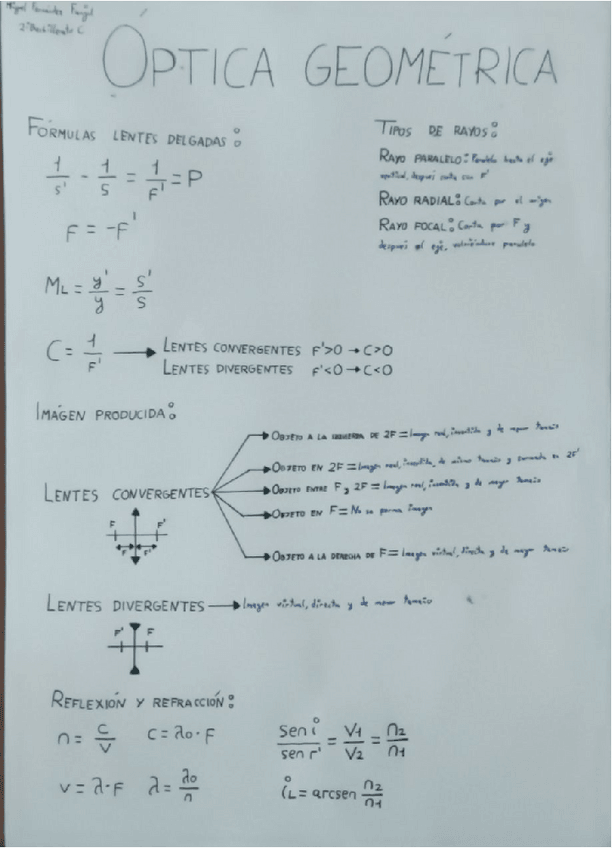 Miguel Fernández
2º Bachillerato C
ÓPTICA GEOMÉTRICA
FÓRMULAS LENTES DELGADAS:
1/s' - 1/s = 1/F' = P
F = -F'
ML = y'/y = s'/s
C = 1/F' → LENTES CONVERGENTES F'>0 → C>0
LENTES DIVERGENTES F'<0 → C<0
TIPOS DE RAYOS:
RAYO PARALELO: Paralelo hasta el eje
después corta con F'
RAYO RADIAL: Corta por el origen
RAYO FOCAL: Corta por F y
después el eje, paralelo
IMÁGEN PRODUCIDA:
LENTES CONVERGENTES
OBJETO A LA IZQUIERDA DE 2F = Imagen real, invertida y de menor tamaño
OBJETO EN 2F = Imagen real, invertida, de mismo tamaño y formada en 2F'
OBJETO ENTRE F y 2F = Imagen real, invertida y de mayor tamaño
OBJETO EN F = No se forma imagen
OBJETO A LA DERECHA DE F = Imagen virtual, directa y de mayor tamaño
F F'
F F'
LENTES DIVERGENTES → Imagen virtual, directa y de menor tamaño
F' F
REFLEXIÓN Y REFRACCIÓN:
n = c/v C = λo · F
v = λ · F λ = λo/n
sen i/sen r' = V1/V2 = n2/n1
iL = arcsen n2/n1